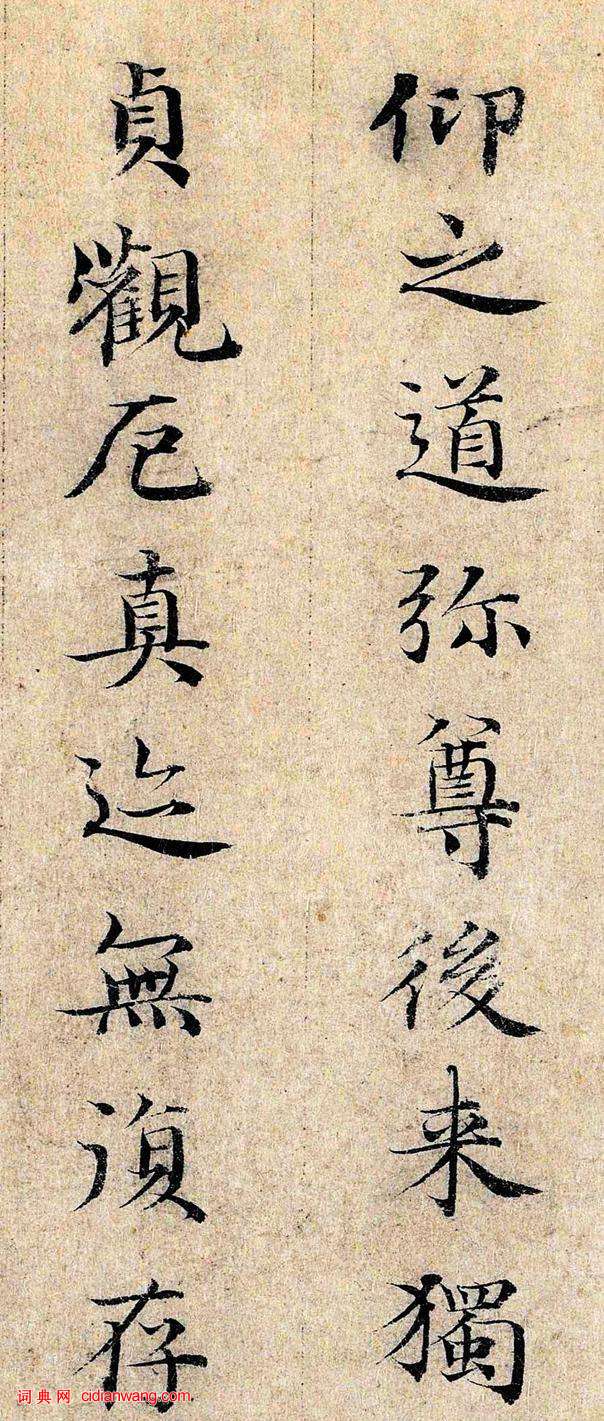 仰之道弥尊後来獨
貞觀厄真迹無復存
词典网 cidianwang.com